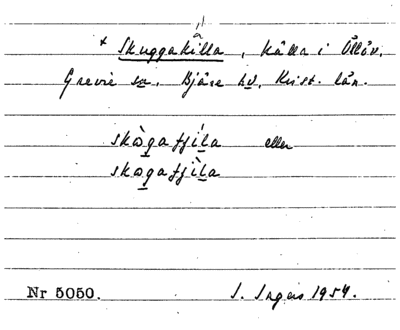 + Skuggakilla, källa i Öllöv,
Grevie sn, Bjäre hd, Krist. län.
skògafjíla eller
skogafjìla
Nr 5050. I. Ingers 1954.